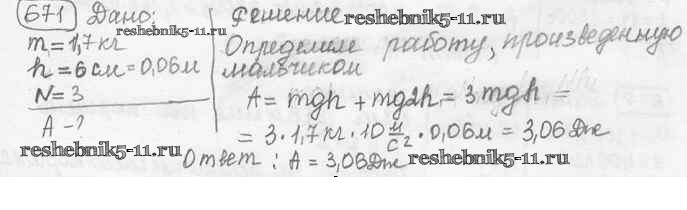 671 Дано: Решение reshebnik5-11.ru
reshebnik5-11.ru
m = 1,7 кг Определим работу, произведенную
h = 6 см = 0,06 м мальчиком
N = 3 A = mgh + mg2h = 3mgh =
A - ? = 3 · 1,7 кг · 10 м/с² · 0,06 м = 3,06 Дж
reshebnik5-11.ru Ответ: A = 3,06 Дж reshebnik5-11.ru